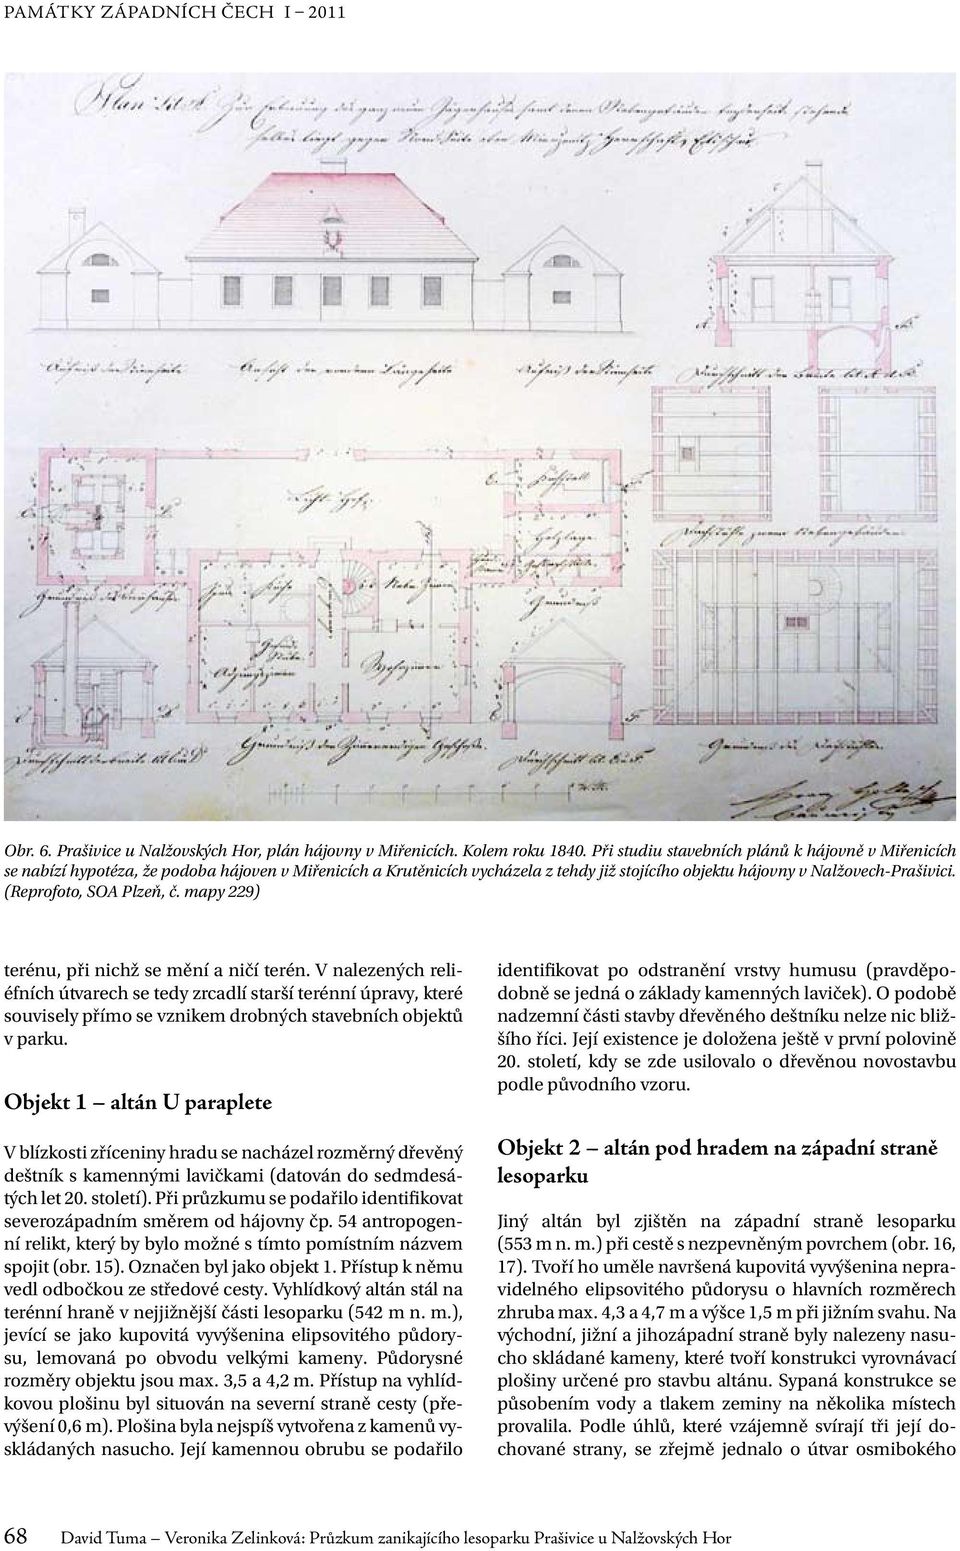 PAMÁTKY ZÁPADNÍCH ČECH I – 2011
Plan
Aufriß der Stirnseite
Ansicht der vordern Längeseite
Aufriß der Stirnseite
Licht Hof
Holzlage
Küche
Wohnzimmer
Grundriß
Obr. 6. Prašivice u Nalžovských Hor, plán hájovny v Miřenicích. Kolem roku 1840. Při studiu stavebních plánů k hájovně v Miřenicích
se nabízí hypotéza, že podoba hájoven v Miřenicích a Krutěnicích vycházela z tehdy již stojícího objektu hájovny v Nalžovech-Prašivici.
(Reprofoto, SOA Plzeň, č. mapy 229)
terénu, při nichž se mění a ničí terén. V nalezených reli-
éfních útvarech se tedy zrcadlí starší terénní úpravy, které
souvisely přímo se vznikem drobných stavebních objektů
v parku.
Objekt 1 – altán U paraplete
V blízkosti zříceniny hradu se nacházel rozměrný dřevěný
deštník s kamennými lavičkami (datován do sedmdesá-
tých let 20. století). Při průzkumu se podařilo identifikovat
severozápadním směrem od hájovny čp. 54 antropogen-
ní relikt, který by bylo možné s tímto pomístním názvem
spojit (obr. 15). Označen byl jako objekt 1. Přístup k němu
vedl odbočkou ze středové cesty. Vyhlídkový altán stál na
terénní hraně v nejjižnější části lesoparku (542 m n. m.),
jevící se jako kupovitá vyvýšenina elipsovitého půdory-
su, lemovaná po obvodu velkými kameny. Půdorysné
rozměry objektu jsou max. 3,5 a 4,2 m. Přístup na vyhlíd-
kovou plošinu byl situován na severní straně cesty (pře-
výšení 0,6 m). Plošina byla nejspíš vytvořena z kamenů vy-
skládaných nasucho. Její kamennou obrubu se podařilo
identifikovat po odstranění vrstvy humusu (pravděpo-
dobně se jedná o základy kamenných laviček). O podobě
nadzemní části stavby dřevěného deštníku nelze nic bliž-
šího říci. Její existence je doložena ještě v první polovině
20. století, kdy se zde usilovalo o dřevěnou novostavbu
podle původního vzoru.
Objekt 2 – altán pod hradem na západní straně
lesoparku
Jiný altán byl zjištěn na západní straně lesoparku
(553 m n. m.) při cestě s nezpevněným povrchem (obr. 16,
17). Tvoří ho uměle navršená kupovitá vyvýšenina nepra-
videlného elipsovitého půdorysu o hlavních rozměrech
zhruba max. 4,3 a 4,7 m a výšce 1,5 m při jižním svahu. Na
východní, jižní a jihozápadní straně byly nalezeny nasu-
cho skládané kameny, které tvoří konstrukci vyrovnávací
plošiny určené pro stavbu altánu. Sypaná konstrukce se
působením vody a tlakem zeminy na několika místech
provalila. Podle úhlů, které vzájemně svírají tři její do-
chované strany, se zřejmě jednalo o útvar osmibokého
68 David Tuma – Veronika Zelinková: Průzkum zanikajícího lesoparku Prašivice u Nalžovských Hor